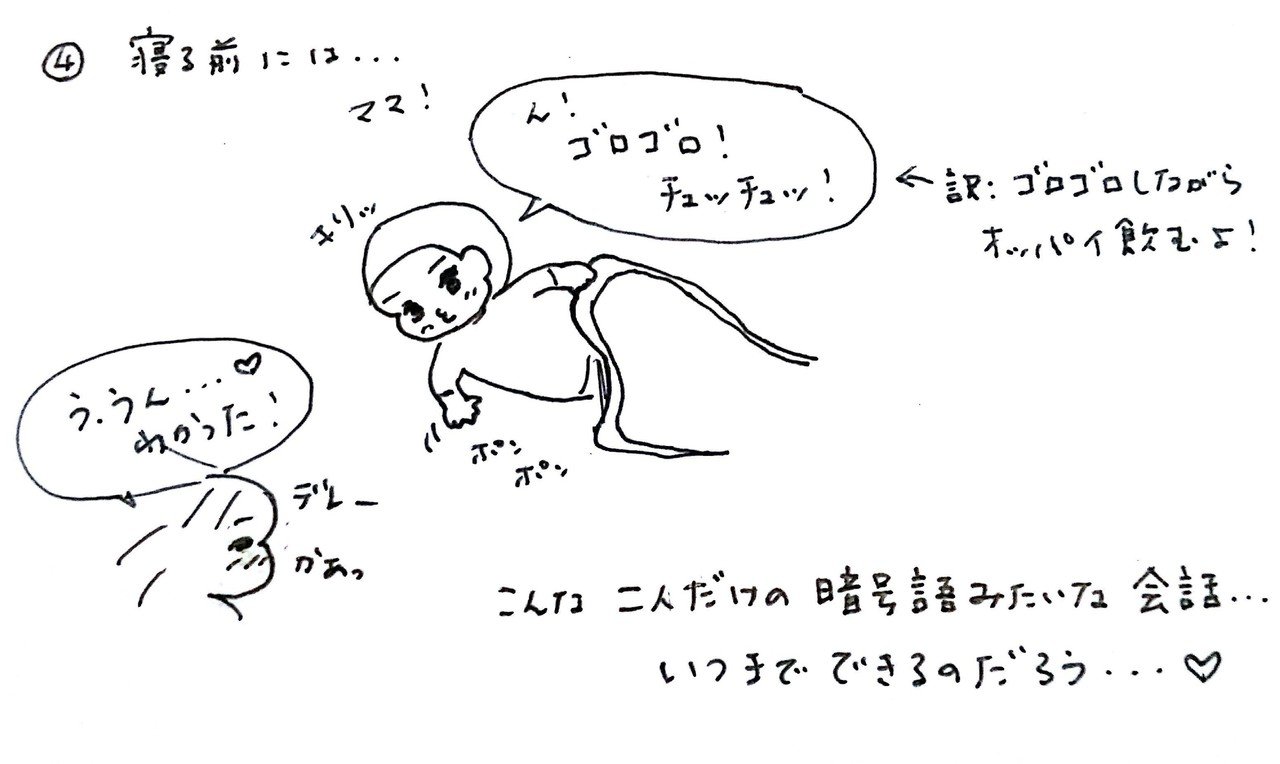 ④ 寝る前には...
ママ!
ん!
ゴロゴロ!
チュッチュッ!
←訳:ゴロゴロしながら
オッパイ飲むよ!
キリッ
ポン
ポン
う、うん...♡
わかった!
デレー
かあっ
こんな二人だけの暗号語みたいな会話...
いつまでできるのだろう...♡